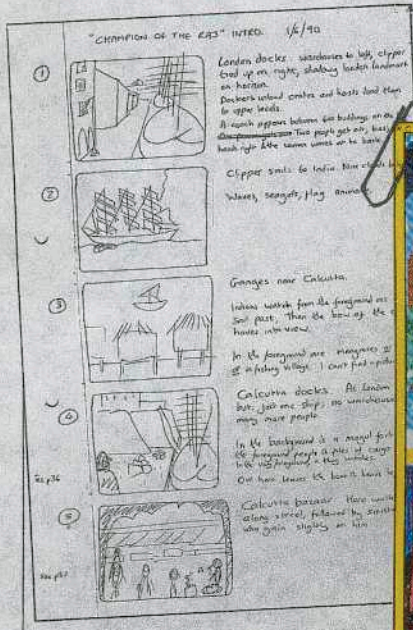 "CHAMPION OF THE RAJ" INTRO. 1/5/90
1
London docks. warehouses to left, clipper
tied up on right, shadowy london landmark
on horizon.
Dockers unload crates and hoists load them
to upper levels.
A coach appears between two buildings, on the
Two people get out,
2
Clipper sails to India.
Waves, seagulls, flag
3
Ganges near Calcutta.
Indians watch from the foreground as
sail past. Then the bow of the
hoves into view.
In the foreground are mangroves
fishing village. I can't find a
4
Calcutta docks. As London
but just one ship; no warehouses
many more people.
In the background is a mogul fort
the foreground people & piles of cargo
Our hero leaves the boat &
See p36
5
Calcutta bazaar. Hero walks
along street, followed by
who gain slightly on him
See p37